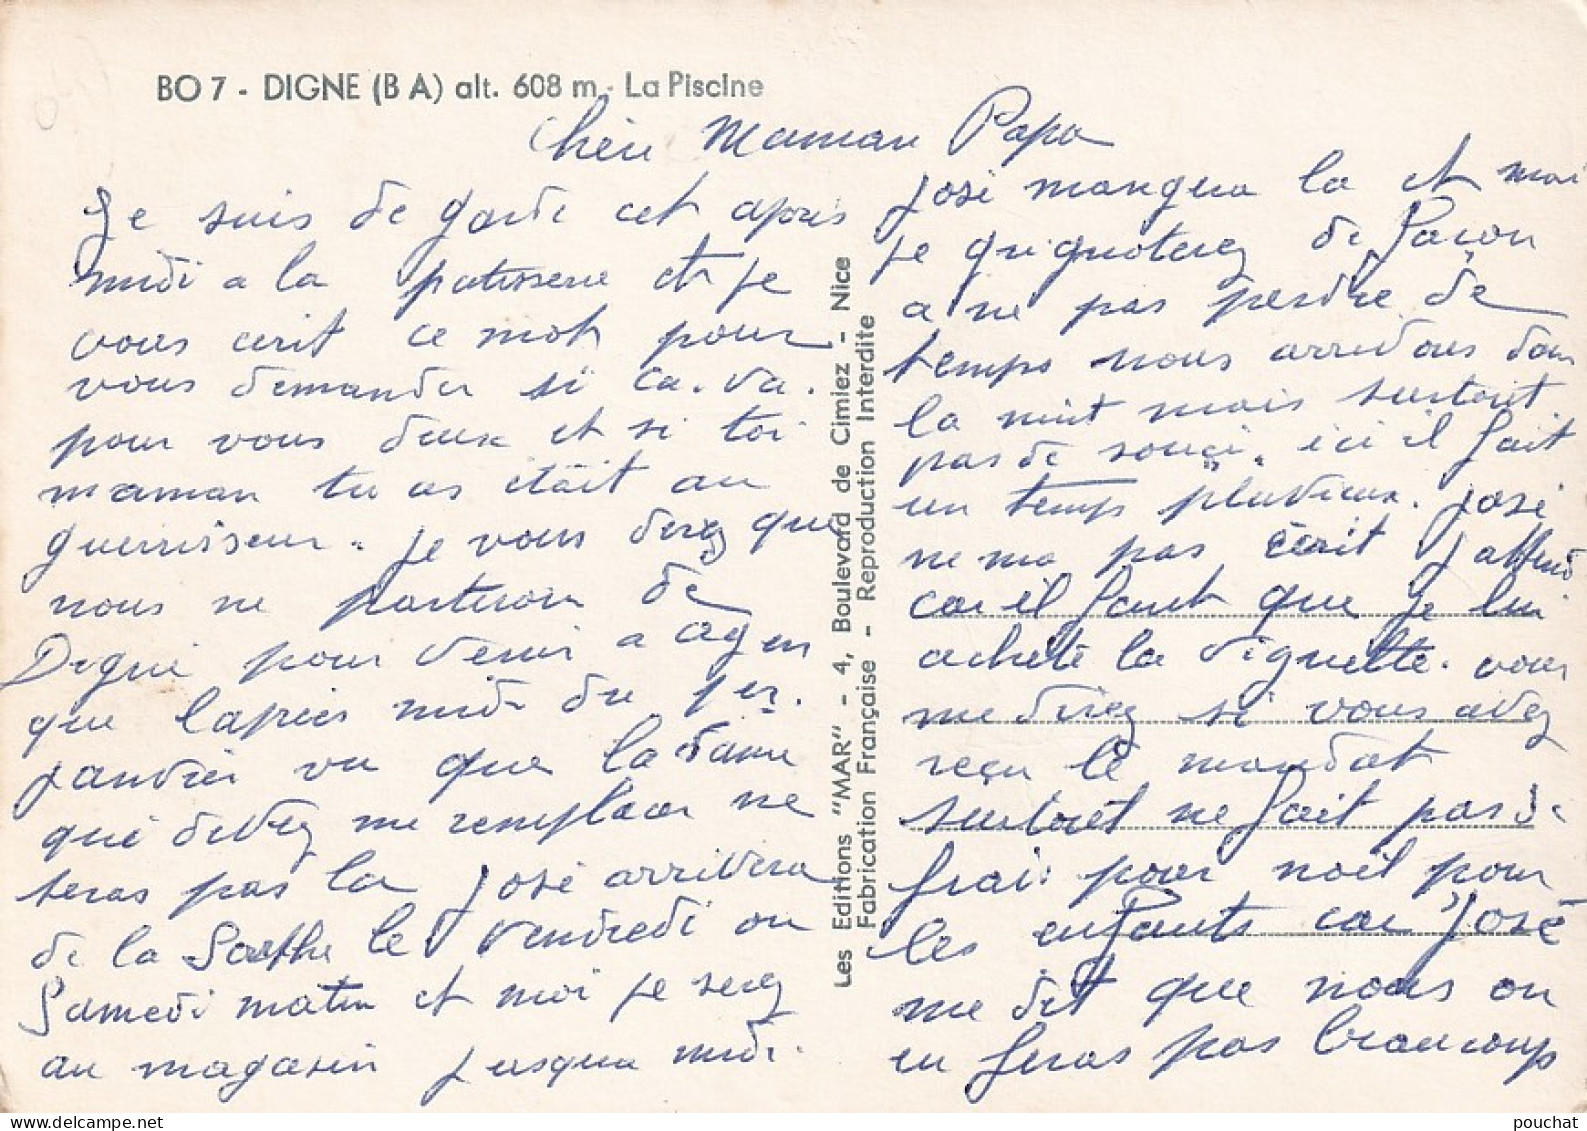 BO 7 - DIGNE (B A) alt. 608 m - La Piscine
Chère Maman Papa
Je suis de garde cet apres
midi a la patisserie et je
vous ecrit ce mot pour
vous demander si ca. va.
pour vous deux et si toi
maman tu as étáit au
guerrisseur. je vous direz que
nous ne partiron de
Digne pour venir a agen
que l'apres midi du 1er.
janvier vu que la dame
qui devez me remplacer ne
seras pas la José arrivera
de la Sarthe le vendredi ou
Samedi matin et moi je serez
au magasin jusqua midi.
José mangera la et moi
je grignoterez de façon
a ne pas perdre de
temps nous arriverons dans
la nuit mais surtout
pas de souçi. ici il fait
un temps pluvieux. José
ne ma pas écrit j'attend
car il faut que je lui
achete la vignette. vous
me direz si vous avez
reçu le mandat
surtout ne fait pas de
frais pour noël pour
les enfants car José
me dit que nous on
en feras pas beaucoup
Les Editions "MAR" - 4, Boulevard de Cimiez - Nice
Fabrication Française - Reproduction Interdite
pouchat